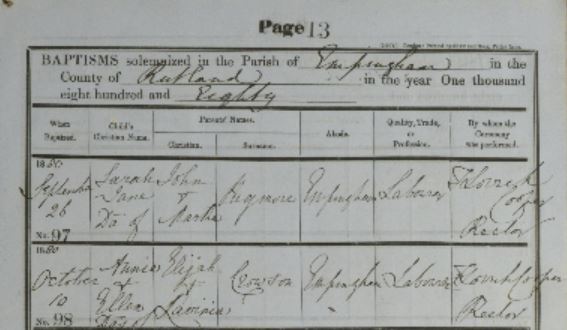 Page 13
BAPTISMS solemnized in the Parish of Empingham in the
County of Rutland in the year One thousand
eight hundred and Eighty
When Baptized. Child's Christian Name. Parents' Names. Abode. Quality, Trade, or Profession. By whom the Ceremony was performed.
Christian. Surname.
1880
September Sarah John
Jane & Empingham Labourer
26 Da of Martha Cooper
No. 97 Rector
1880
October Annie Elijah
& & Empingham Labourer Cooper
10 Ellen Lavinia Rector
No. 98